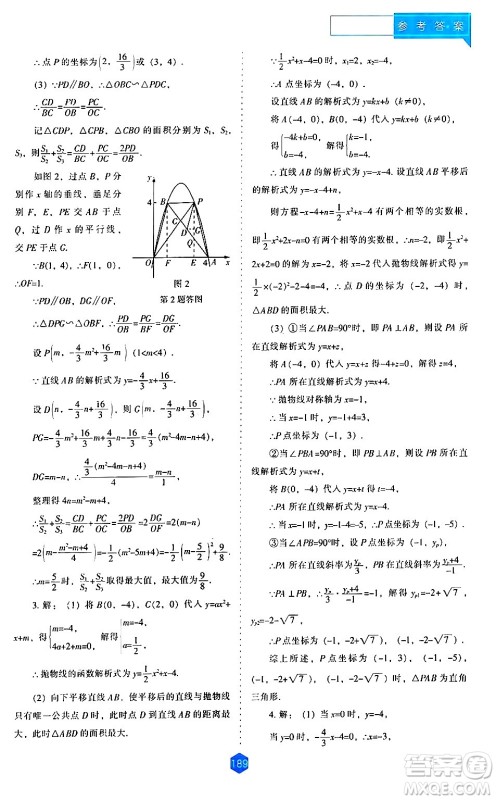 参考答案
∴点 P 的坐标为(2, 16/3)或(3, 4).
(3) ∵PD∥BO, ∴△OBC∽△PDC,
∴CD/BC=PD/OB=PC/OC.
记△CDP, △CPB, △CBO 的面积分别为 S₁, S₂,
S₃. 则S₁/S₂+S₂/S₃=CD/BC+PC/OC=2PD/OB.
如图 2, 过点 B, P 分
别作 x 轴的垂线, 垂足分
别 F, E, PE 交 AB 于点
Q, 过 D 作 x 的平行线,
交 PE 于点 G.
∵B(1, 4), ∴F(1, 0),
∴OF=1.
∵PD∥OB, DG∥OF,
∴△DPG∽△OBF, ∴PD/OB=PG/BF=DG/OF.
图 2
第 2 题答图
设 P(m, -4/3m²+16/3m) (1<m<4).
∵直线 AB 的解析式为 y=-4/3x+16/3,
设 D(n, -4/3n+16/3), ∴G(m, -4/3n+16/3),
PG=-4/3m²+16/3m-(-4/3n+16/3)=-4/3(m²-4m-n+4),
DG=m-n, ∴-4/3(m²-4m-n+4)/4=m-n/1,
整理得 4n=m²-m+4,
∴S₁/S₂+S₂/S₃=CD/BC+PC/OC=2PD/OB=2·DG/OF=2(m-n)
=2(m-m²-m+4/4)=-1/2(m-5/2)²+9/8,
∴m=5/2时, S₁/S₂+S₂/S₃取得最大值, 最大值为9/8.
3. 解: (1) 将 B(0, -4), C(2, 0) 代入 y=ax²+
x+m, 得{m=-4, 4a+2+m=0,}解得{a=1/2, m=-4,}
∴抛物线的函数解析式为 y=1/2x²+x-4.
(2) 向下平移直线 AB, 使平移后的直线与抛物线
只有唯一公共点 D 时, 此时点 D 到直线 AB 的距离最
大, 此时△ABD 的面积最大.
∵1/2x²+x-4=0 时, x₁=2, x₂=-4,
∴A 点坐标为(-4, 0).
设直线 AB 的解析式为 y=kx+b (k≠0),
将 A(-4, 0), B(0, -4) 代入 y=kx+b (k≠0),
得{-4k+b=0, b=-4,}解得{k=-1, b=-4,}
∴直线 AB 的解析式为 y=-x-4. 设直线 AB 平移后
的解析式为 y=-x-4+n,
则方程-x-4+n=1/2x²+x-4 有两个相等的实数根,
即1/2x²+2x-n=0 有两个相等的实数根, ∴n=-2, 即1/2x²+
2x+2=0 的解为 x=-2, 将 x=-2 代入抛物线解析式得, y=
1/2×(-2)²-2-4=-4. ∴点 D 的坐标为(-2, -4)时,
△ABD 的面积最大.
(3) ①当∠PAB=90°时, 即 PA⊥AB, 则设 PA 所
在直线解析式为 y=x+z,
将 A(-4, 0) 代入 y=x+z 得-4+z=0, ∴z=4,
∴PA 所在直线解析式为 y=x+4.
∵抛物线对称轴为 x=-1,
∴当 x=-1 时, y=-1+4=3,
∴P 点坐标为(-1, 3).
②当∠PBA=90°时, 即 PB⊥AB, 则设 PB 所在直
线解析式为 y=x+t,
将 B(0, -4) 代入 y=x+t 得 t=-4,
∴PA 所在直线解析式为 y=x-4.
∴当 x=-1 时, y=-5, ∴P 点坐标(-1, -5).
③当∠APB=90°时, 设 P 点坐标为(-1, yₚ),
∴PA 所在直线斜率为yₚ/3, PB 在直线斜率为yₚ+4/-1.
∵PA⊥PB, ∴yₚ/3·yₚ+4/-1=-1, 解得 yₚ₁=-2+√7,
yₚ₂=-2-√7,
∴P 点坐标为(-1, -2+√7), (-1, -2-√7).
综上所述, P 点坐标为(-1, 3), (-1, -5),
(-1, -2+√7), (-1, -2-√7)时, △PAB 为直角
三角形.
4. 解: (1) 当 x=0 时, y=-4,
当 y=0 时, -4/3x-4=0, ∴x=-3,
189